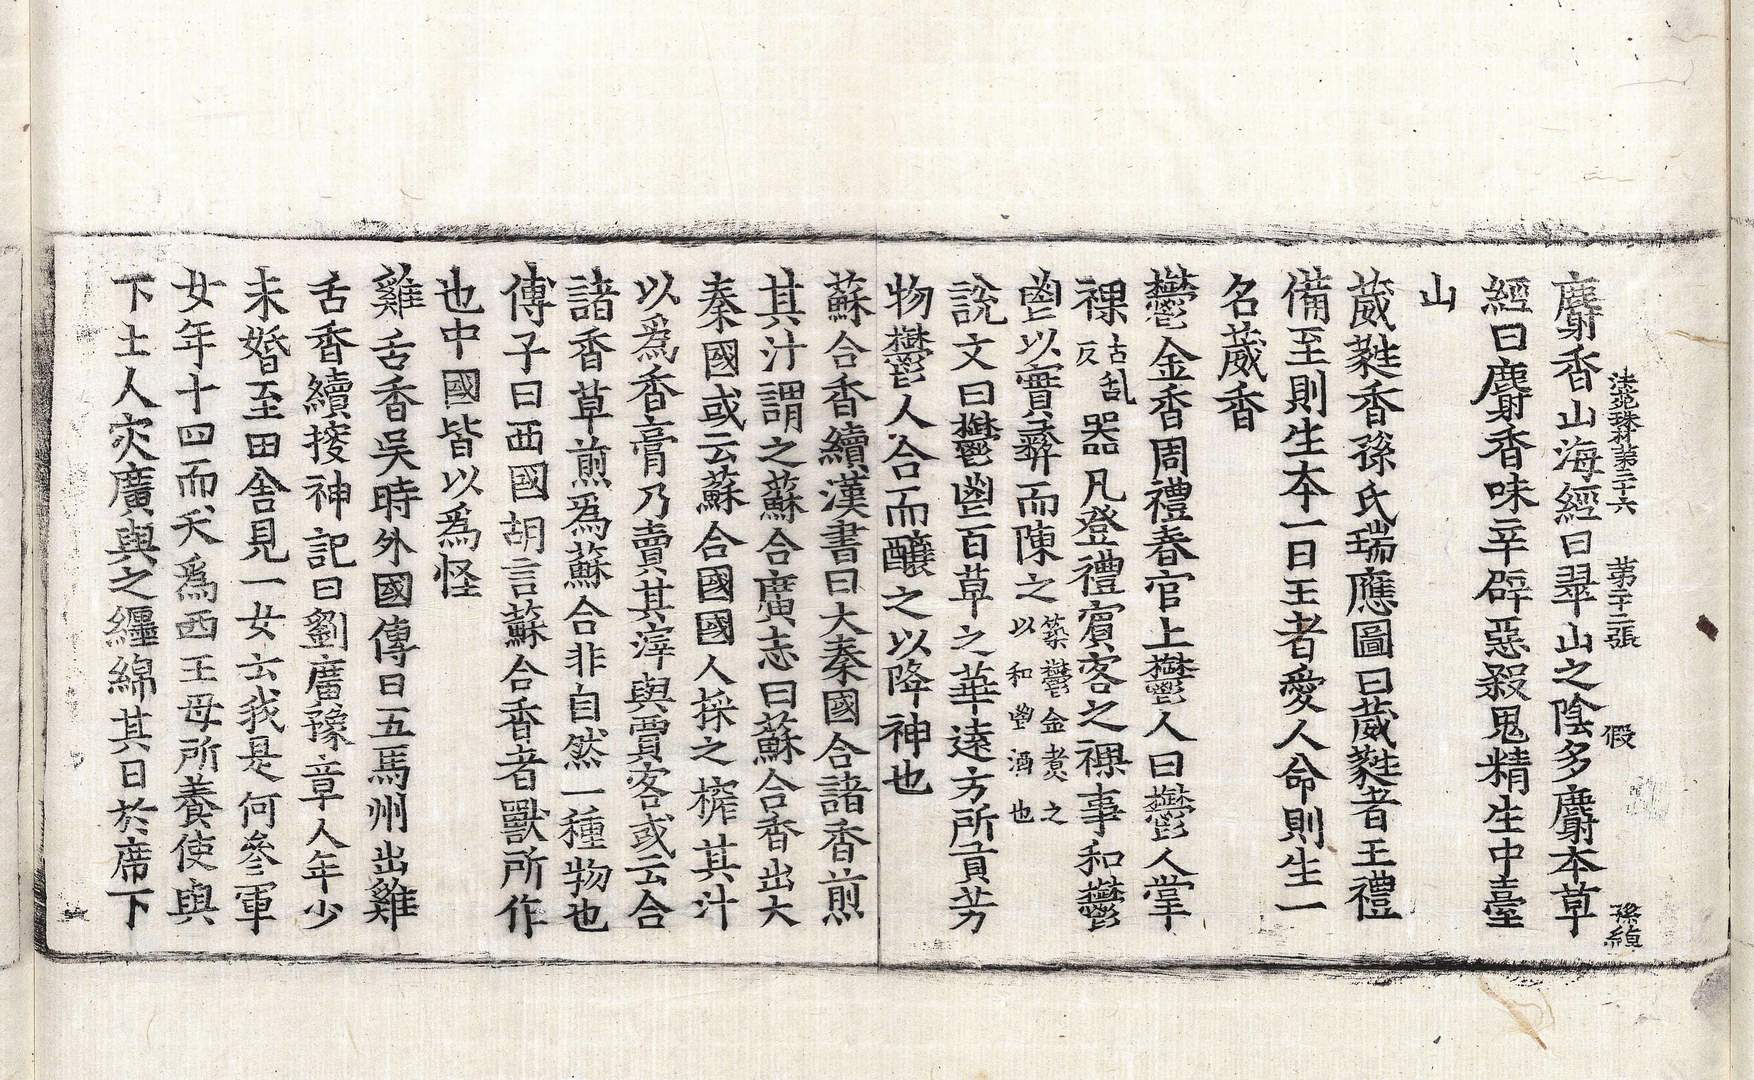 法苑珠林第三十六 第二十二張 假 孫緽
麝香山海經曰翠山之陰多麝本草
經曰麝香味辛辟惡殺鬼精生中臺
山
葳蕤香孫氏瑞應圖曰葳蕤者王禮
備至則生本一曰王者愛人命則生一
名葳香
鬱金香周禮春官上鬱人曰鬱人掌
祼古乱反器凡登禮賓客之祼事和鬱
鬯以實彞而陳之築鬱金煮之以和鬯酒也
說文曰鬱鬯百草之華遠方所貢芳
物鬱人合而釀之以降神也
蘇合香續漢書曰大秦國合諸香煎
其汁謂之蘇合廣志曰蘇合香出大
秦國或云蘇合國國人採之榨其汁
以爲香膏乃賣其滓與賈客或云合
諸香草煎爲蘇合非自然一種物也
傅子曰西國胡言蘇合香者獸所作
也中國皆以爲怪
雞舌香吳時外國傳曰五馬州出雞
舌香續搜神記曰劉廣豫章人年少
未婚至田舍見一女云我是何參軍
女年十四而夭爲西王母所養使與
下土人交廣與之纏綿其日於席下